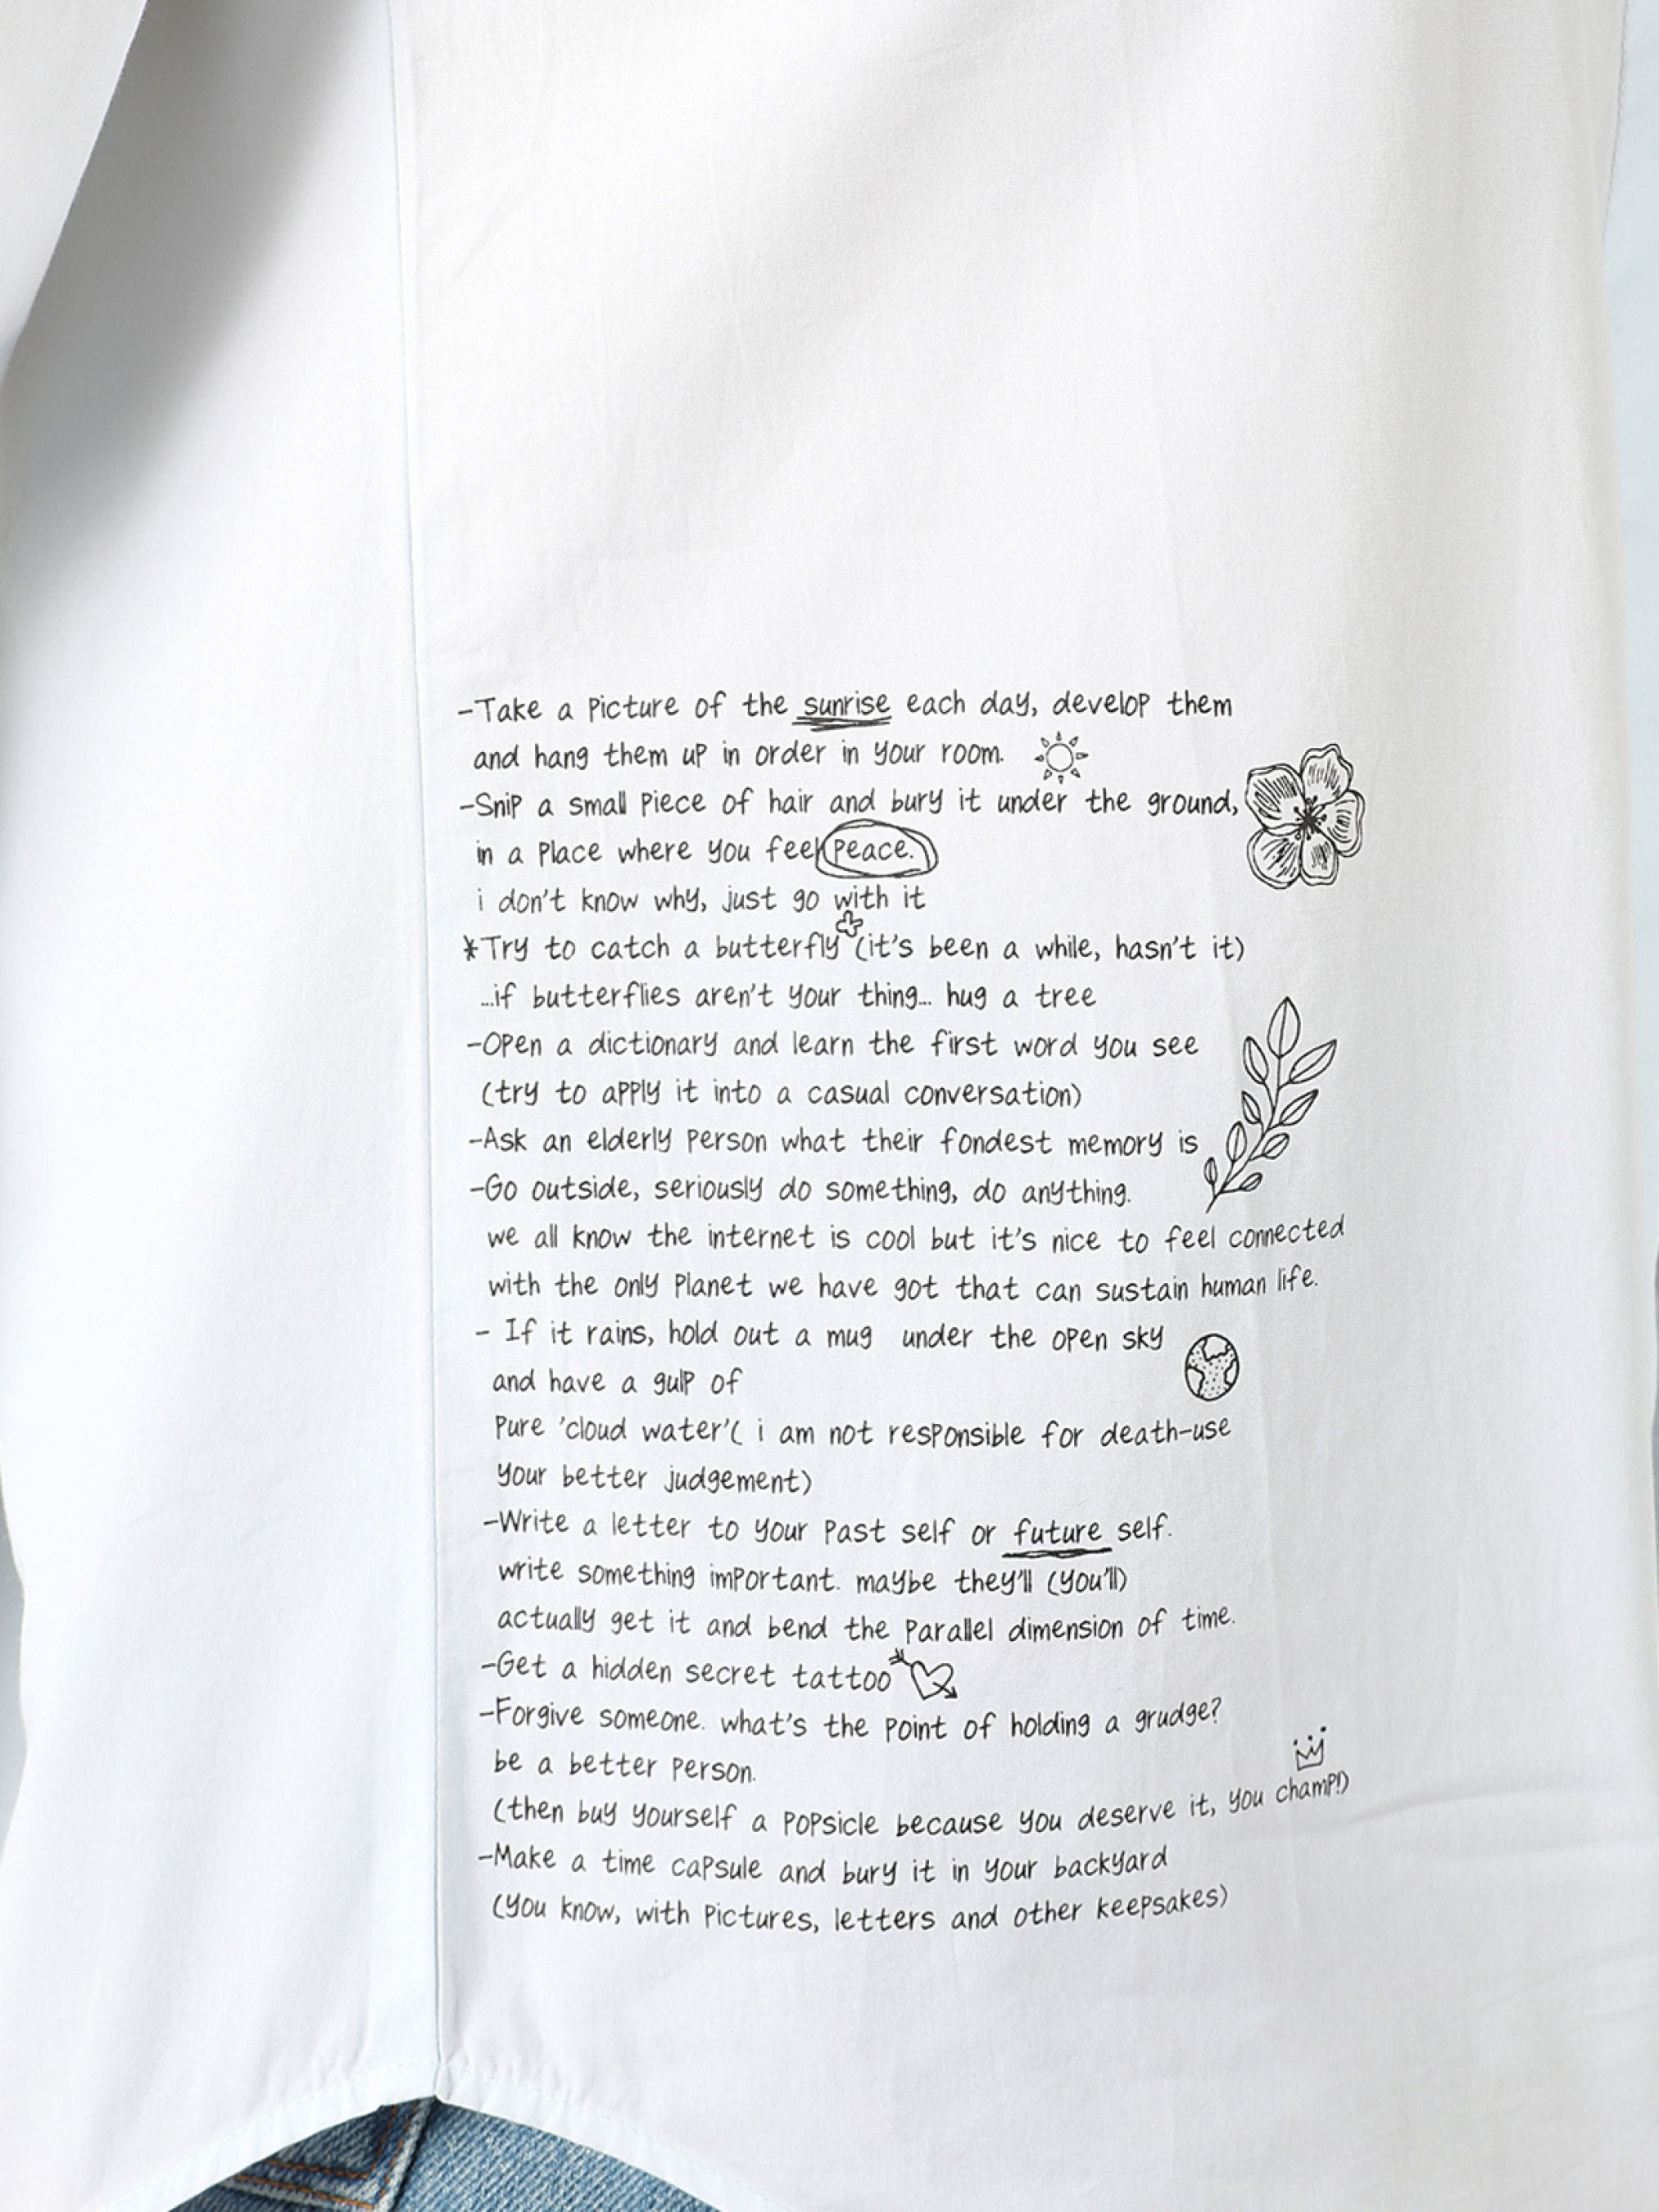 -Take a picture of the sunrise each day, develop them
and hang them up in order in your room.
-Snip a small piece of hair and bury it under the ground,
in a place where you feel peace.
i don't know why, just go with it
*Try to catch a butterfly (it's been a while, hasn't it)
...if butterflies aren't your thing... hug a tree
-Open a dictionary and learn the first word you see
(try to apply it into a casual conversation)
-Ask an elderly person what their fondest memory is
-Go outside, seriously do something, do anything.
we all know the internet is cool but it's nice to feel connected
with the only planet we have got that can sustain human life.
- If it rains, hold out a mug under the open sky
and have a gulp of
pure 'cloud water'( i am not responsible for death-use
your better judgement)
-Write a letter to your past self or future self.
write something important. maybe they'll (you'll)
actually get it and bend the parallel dimension of time.
-Get a hidden secret tattoo
-Forgive someone. what's the point of holding a grudge?
be a better person.
(then buy yourself a popsicle because you deserve it, you champ!)
-Make a time capsule and bury it in your backyard
(you know, with pictures, letters and other keepsakes)